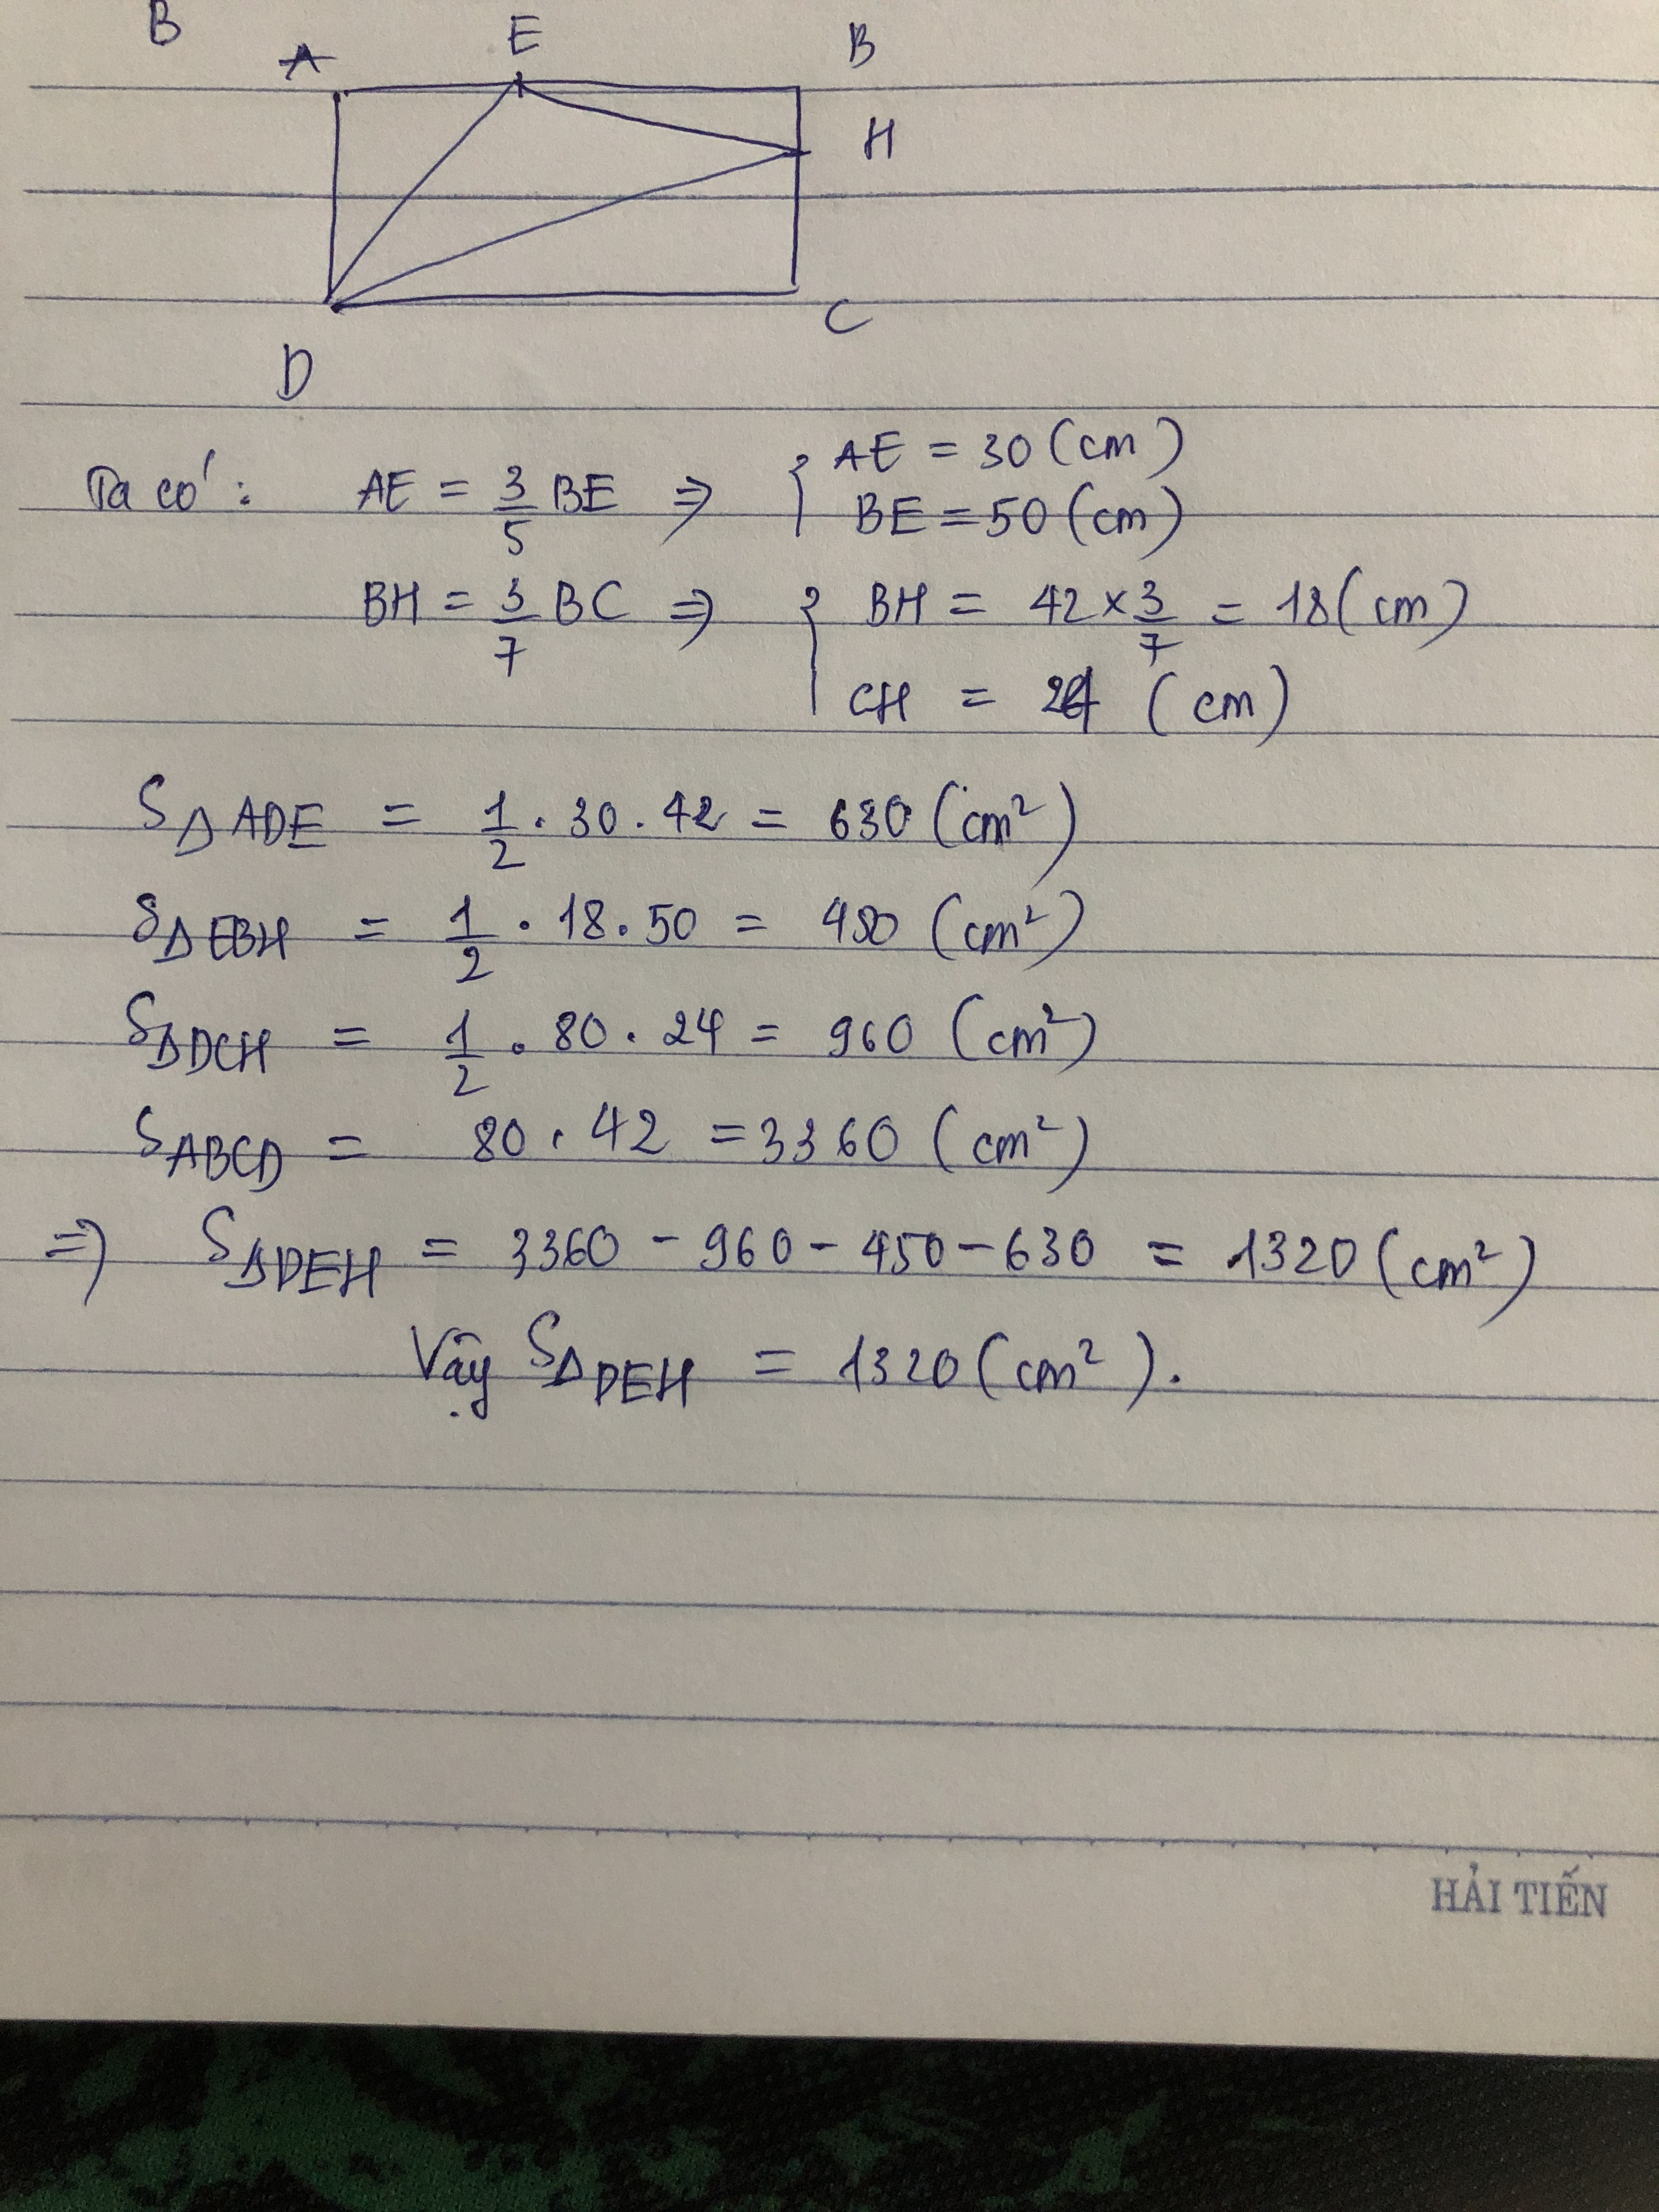 B
A E B
H
D C
Ta có: AE = 3/5 BE ⇒ { AE = 30 (cm)
BE = 50 (cm)
BH = 3/7 BC ⇒ { BH = 42 × 3/7 = 18 (cm)
CH = 24 (cm)
SΔADE = 1/2 . 30 . 42 = 630 (cm²)
SΔEBH = 1/2 . 18 . 50 = 450 (cm²)
SΔDCH = 1/2 . 80 . 24 = 960 (cm²)
SABCD = 80 . 42 = 3360 (cm²)
⇒ SΔDEH = 3360 - 960 - 450 - 630 = 1320 (cm²)
Vậy SΔDEH = 1320 (cm²).
HẢI TIẾN